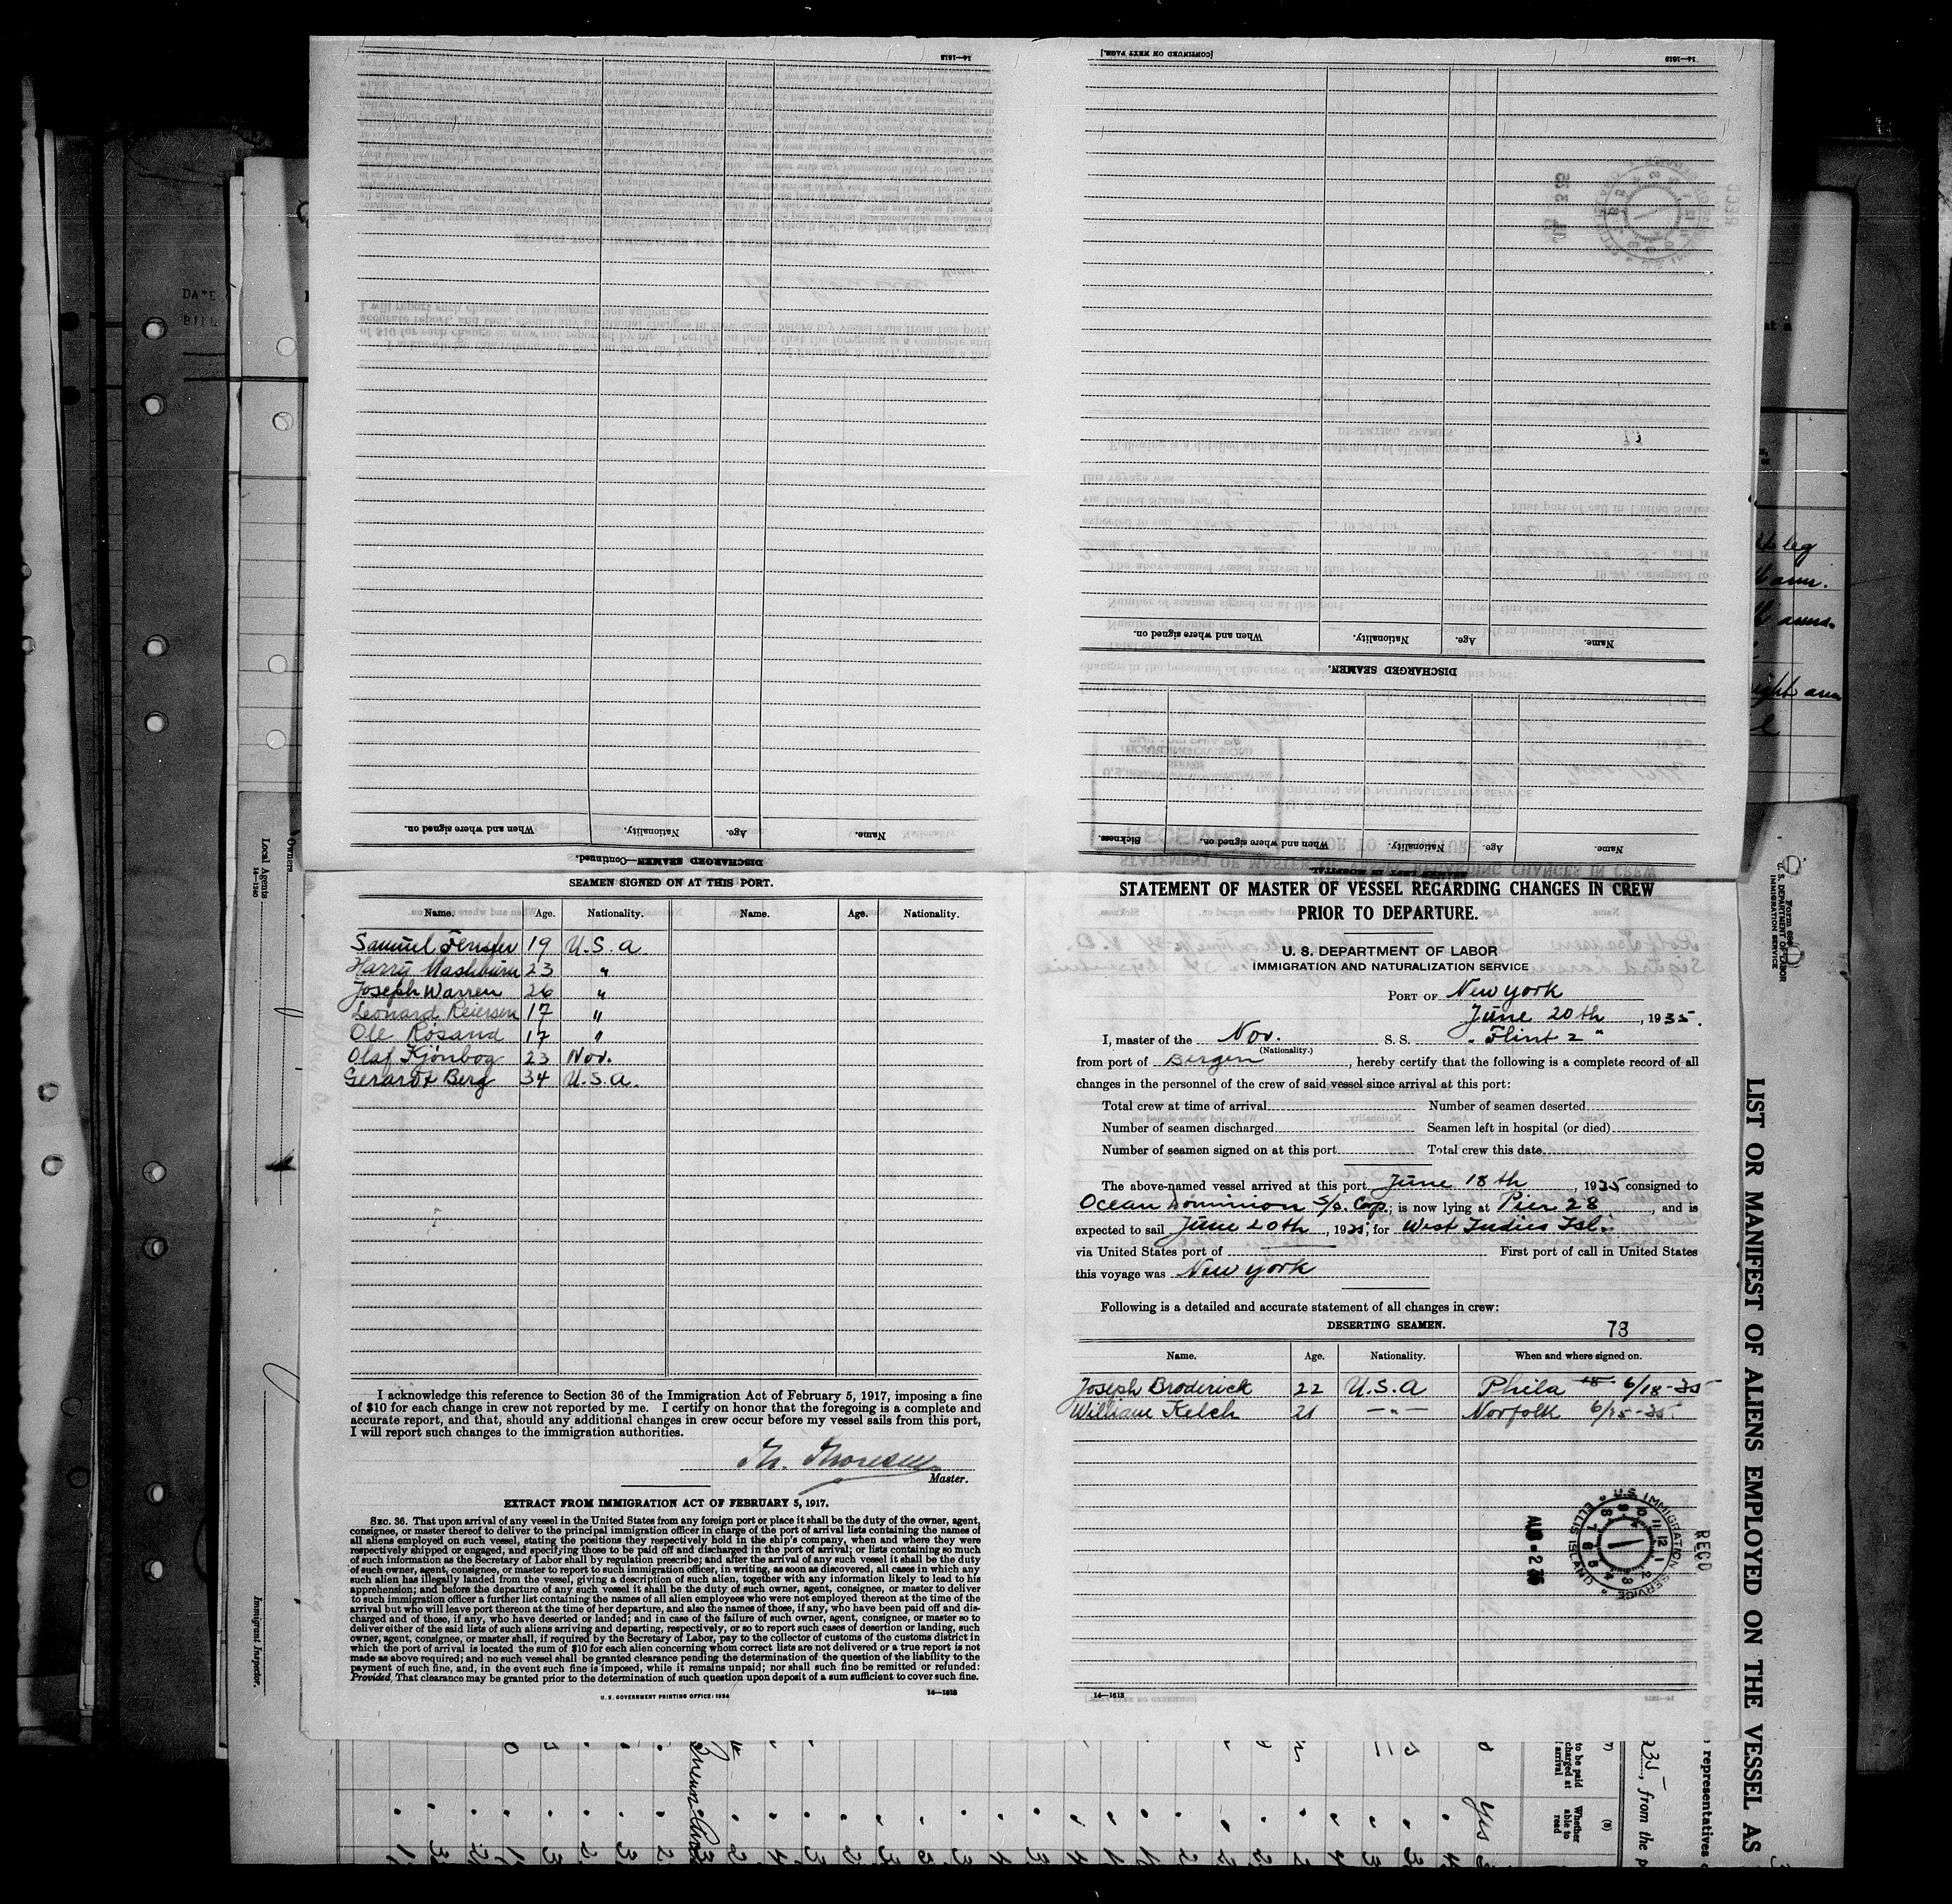 SEAMEN SIGNED ON AT THIS PORT.
Name. Age. Nationality. Name. Age. Nationality.
Samuel 19 U.S.A
Harry Mashburn 23 "
Joseph Warren 26 "
Leonard Reiersen 17 "
Ole Rosand 17 "
Olaf Kjönbog 23 Nor.
Gerardt Berg 34 U.S.A.
I acknowledge this reference to Section 36 of the Immigration Act of February 5, 1917, imposing a fine
of $10 for each change in crew not reported by me. I certify on honor that the foregoing is a complete and
accurate report, and that, should any additional changes in crew occur before my vessel sails from this port,
I will report such changes to the immigration authorities.
Th. Thoresen
Master.
EXTRACT FROM IMMIGRATION ACT OF FEBRUARY 5, 1917.
SEC. 36. That upon arrival of any vessel in the United States from any foreign port or place it shall be the duty of the owner, agent,
consignee, or master thereof to deliver to the principal immigration officer in charge of the port of arrival lists containing the names of
all aliens employed on such vessel, stating the positions they respectively hold in the ship's company, when and where they were
respectively shipped or engaged, and specifying those to be paid off and discharged in the port of arrival; or lists containing so much
of such information as the Secretary of Labor shall by regulation prescribe; and after the arrival of any such vessel it shall be the duty
of such owner, agent, consignee, or master to report to such immigration officer, in writing, as soon as discovered, all cases in which any
such alien has illegally landed from the vessel, giving a description of such alien, together with any information likely to lead to his
apprehension; and before the departure of any such vessel it shall be the duty of such owner, agent, consignee, or master to deliver
to such immigration officer a further list containing the names of all alien employees who were not employed thereon at the time of the
arrival but who will leave port thereon at the time of her departure, and also the names of those, if any, who have been paid off and dis-
charged and of those, if any, who have deserted or landed; and in case of the failure of such owner, agent, consignee, or master so to
deliver either of the said lists of such aliens arriving and departing, respectively, or so to report such cases of desertion or landing, such
owner, agent, consignee, or master shall, if required by the Secretary of Labor, pay to the collector of customs of the customs district in
which the port of arrival is located the sum of $10 for each alien concerning whom correct lists are not delivered or a true report is not
made as above required; and no such vessel shall be granted clearance pending the determination of the question of the liability to the
payment of such fine, and, in the event such fine is imposed, while it remains unpaid; nor shall such fine be remitted or refunded:
Provided, That clearance may be granted prior to the determination of such question upon deposit of a sum sufficient to cover such fine.
U. S. GOVERNMENT PRINTING OFFICE: 1934 14—1613
STATEMENT OF MASTER OF VESSEL REGARDING CHANGES IN CREW
PRIOR TO DEPARTURE.
U. S. DEPARTMENT OF LABOR
IMMIGRATION AND NATURALIZATION SERVICE
PORT OF New york
June 20th, 1935.
I, master of the Nor. S. S. "Flint 2"
(Nationality.)
from port of Bergen, hereby certify that the following is a complete record of all
changes in the personnel of the crew of said vessel since arrival at this port:
Total crew at time of arrival Number of seamen deserted
Number of seamen discharged Seamen left in hospital (or died)
Number of seamen signed on at this port Total crew this date
The above-named vessel arrived at this port June 18th, 1935 consigned to
Ocean Dominion S/S. Corp.; is now lying at Pier 28, and is
expected to sail June 20th, 1935, for West Indies Isl.
via United States port of First port of call in United States
this voyage was New york
Following is a detailed and accurate statement of all changes in crew:
DESERTING SEAMEN. 73
Name. Age. Nationality. When and where signed on.
Joseph Broderick 22 U.S.A Phila 6/18-35
William Kelch 21 —"— Norfolk 6/15-35
RECD
U.S. IMMIGRATION SERVICE ELLIS ISLAND
14—1613
LIST OR MANIFEST OF ALIENS EMPLOYED ON THE VESSEL AS
DISCHARGED SEAMEN—Continued.
Name. Age. Nationality. When and where signed on.
14—1613
Name. Age. Nationality. When and where signed on. Sickness.
DISCHARGED SEAMEN.
Name. Age. Nationality. When and where signed on.
[CONTINUED ON NEXT PAGE.]
14—1613
Owners.
Local Agents
Immigrant Inspector.
U. S. DEPARTMENT OF LABOR
IMMIGRATION SERVICE
representatives
from the
to be paid
Whether
able to
read
Yes